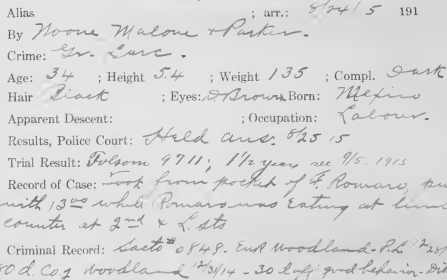 Alias ; arr.: 8/24/15 191
By Noone Malone & Parker.
Crime: Gr. Larc.
Age: 34 ; Height 5.4 ; Weight 135 ; Compl. Dark
Hair Black ; Eyes: D Brown Born: Mexico
Apparent Descent: ; Occupation: Laborer.
Results, Police Court: Held ans. 8/25 15
Trial Result: Folsom 9711; 1½ years rec 9/5. 1915
Record of Case: Took from pocket of F. Romaro, pu
with 13 00 while Romaro was Eating at lun
counter at 2nd & L. Sts
Criminal Record: Sacto # 0848. Woodland - P.L. 12
80 d. Co. J Woodland 12/31/14 - 30 good behavior.